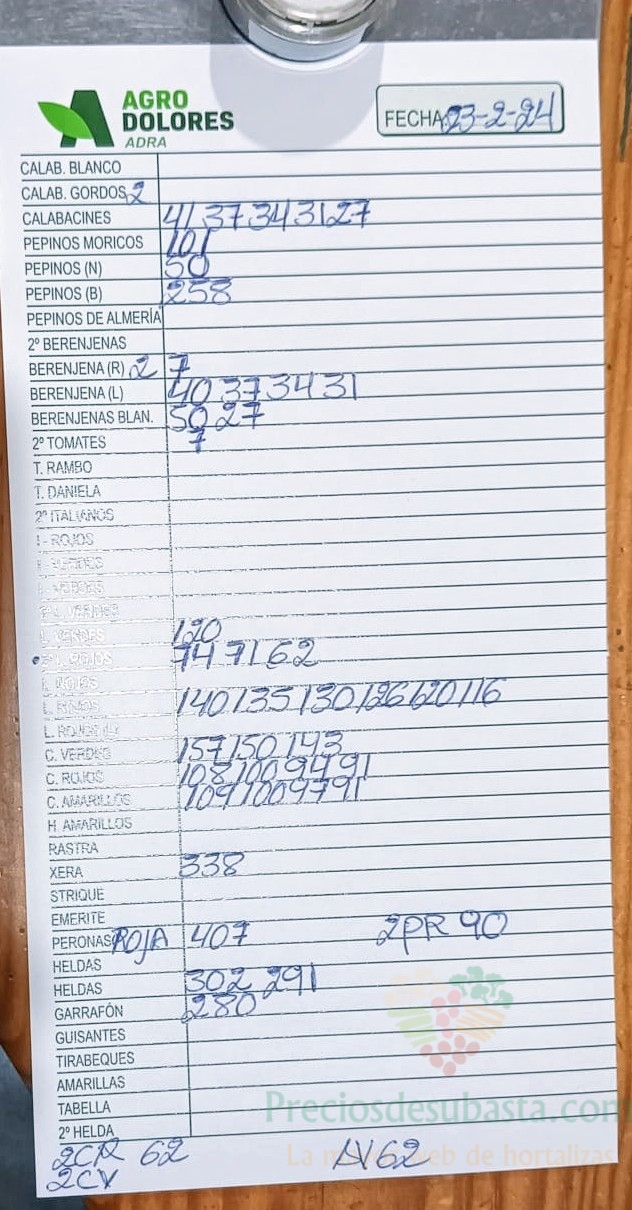 AGRO
DOLORES
ADRA
FECHA 23-2-24
CALAB. BLANCO
CALAB. GORDOS 2
CALABACINES 41 37 34 31 27
PEPINOS MORICOS 101
PEPINOS (N) 50
PEPINOS (B) 258
PEPINOS DE ALMERÍA
2º BERENJENAS
BERENJENA (R) 2 7
BERENJENA (L) 40 37 34 31
BERENJENAS BLAN. 50 27
2º TOMATES 7
T. RAMBO
T. DANIELA
2º ITALIANOS
I - ROJOS
I - VERDES
L. VERDES 120
2º L. ROJOS 74 71 62
L. ROJOS
140 135 130 126 120 116
C. VERDES 157 150 143
C. ROJOS 108 100 94 91
C. AMARILLOS 109 100 97 91
H. AMARILLOS
RASTRA
XERA 338
STRIQUE
EMERITE
PERONAS ROJA 407 2PR 90
HELDAS
HELDAS 302 291
GARRAFÓN 280
GUISANTES
TIRABEQUES
AMARILLAS
TABELLA
2º HELDA
2CR 62 LV62
2CV
Preciosdesubasta.com
La mayor web de hortalizas